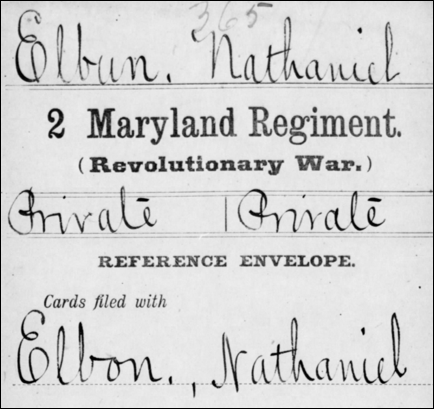 365
Elbun. Nathaniel
2 Maryland Regiment.
(Revolutionary War.)
Private | Private
REFERENCE ENVELOPE.
Cards filed with
Elbon., Nathaniel